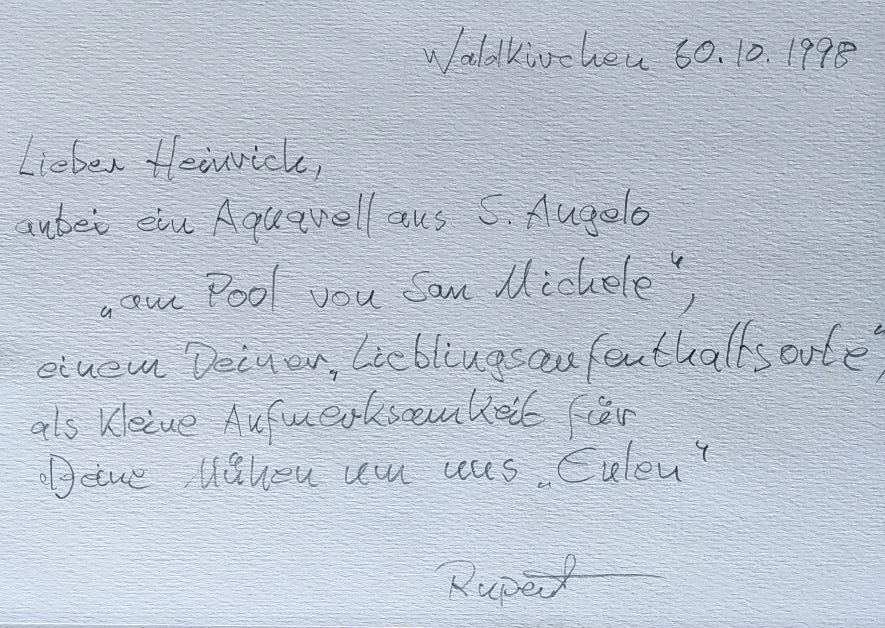 Waldkirchen 30.10.1998
Lieber Heinrich,
anbei ein Aquarell aus S. Angelo
„am Pool von San Michele“,
einem Deiner „Lieblingsaufenthaltsorte“,
als kleine Aufmerksamkeit für
Deine Mühen um uns „Eulen“
Rupert